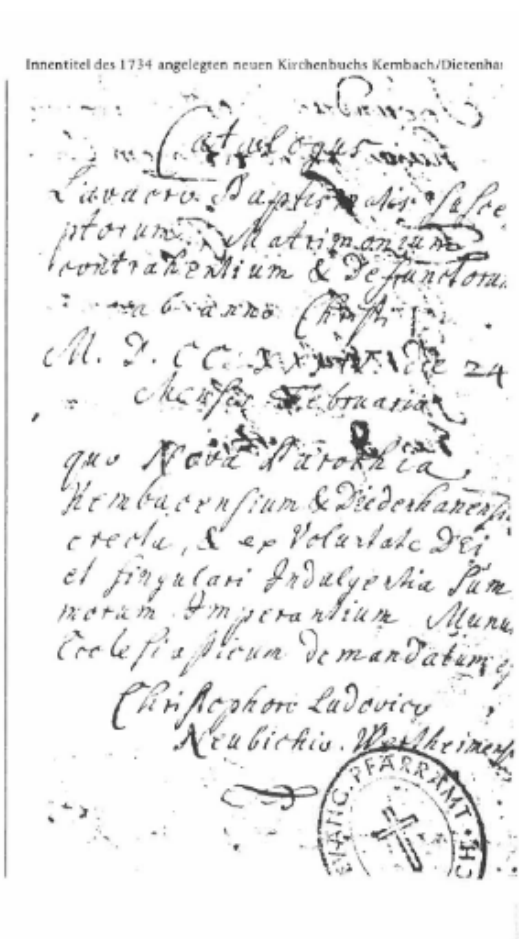 Innentitel des 1734 angelegten neuen Kirchenbuchs Kembach/Dietenha
Catalogus
Lavacro Baptismatis Susce
ptorum, Matrimonium
contrahentium & Defunctoru
ab anno Christi
M. D. CC. XXXIV. die 24
Mensis Februaria
quo Nova Parochia
Kembacensium & Diedenhanensi
erecta, & ex Voluntate Dei
et singulari Indulgentia Sum
morum Imperantium Munu
Ecclesiasticum demandatum e
Christophoro Ludovico
Neubichio. Wertheimens
EVANG. PFARRAMT